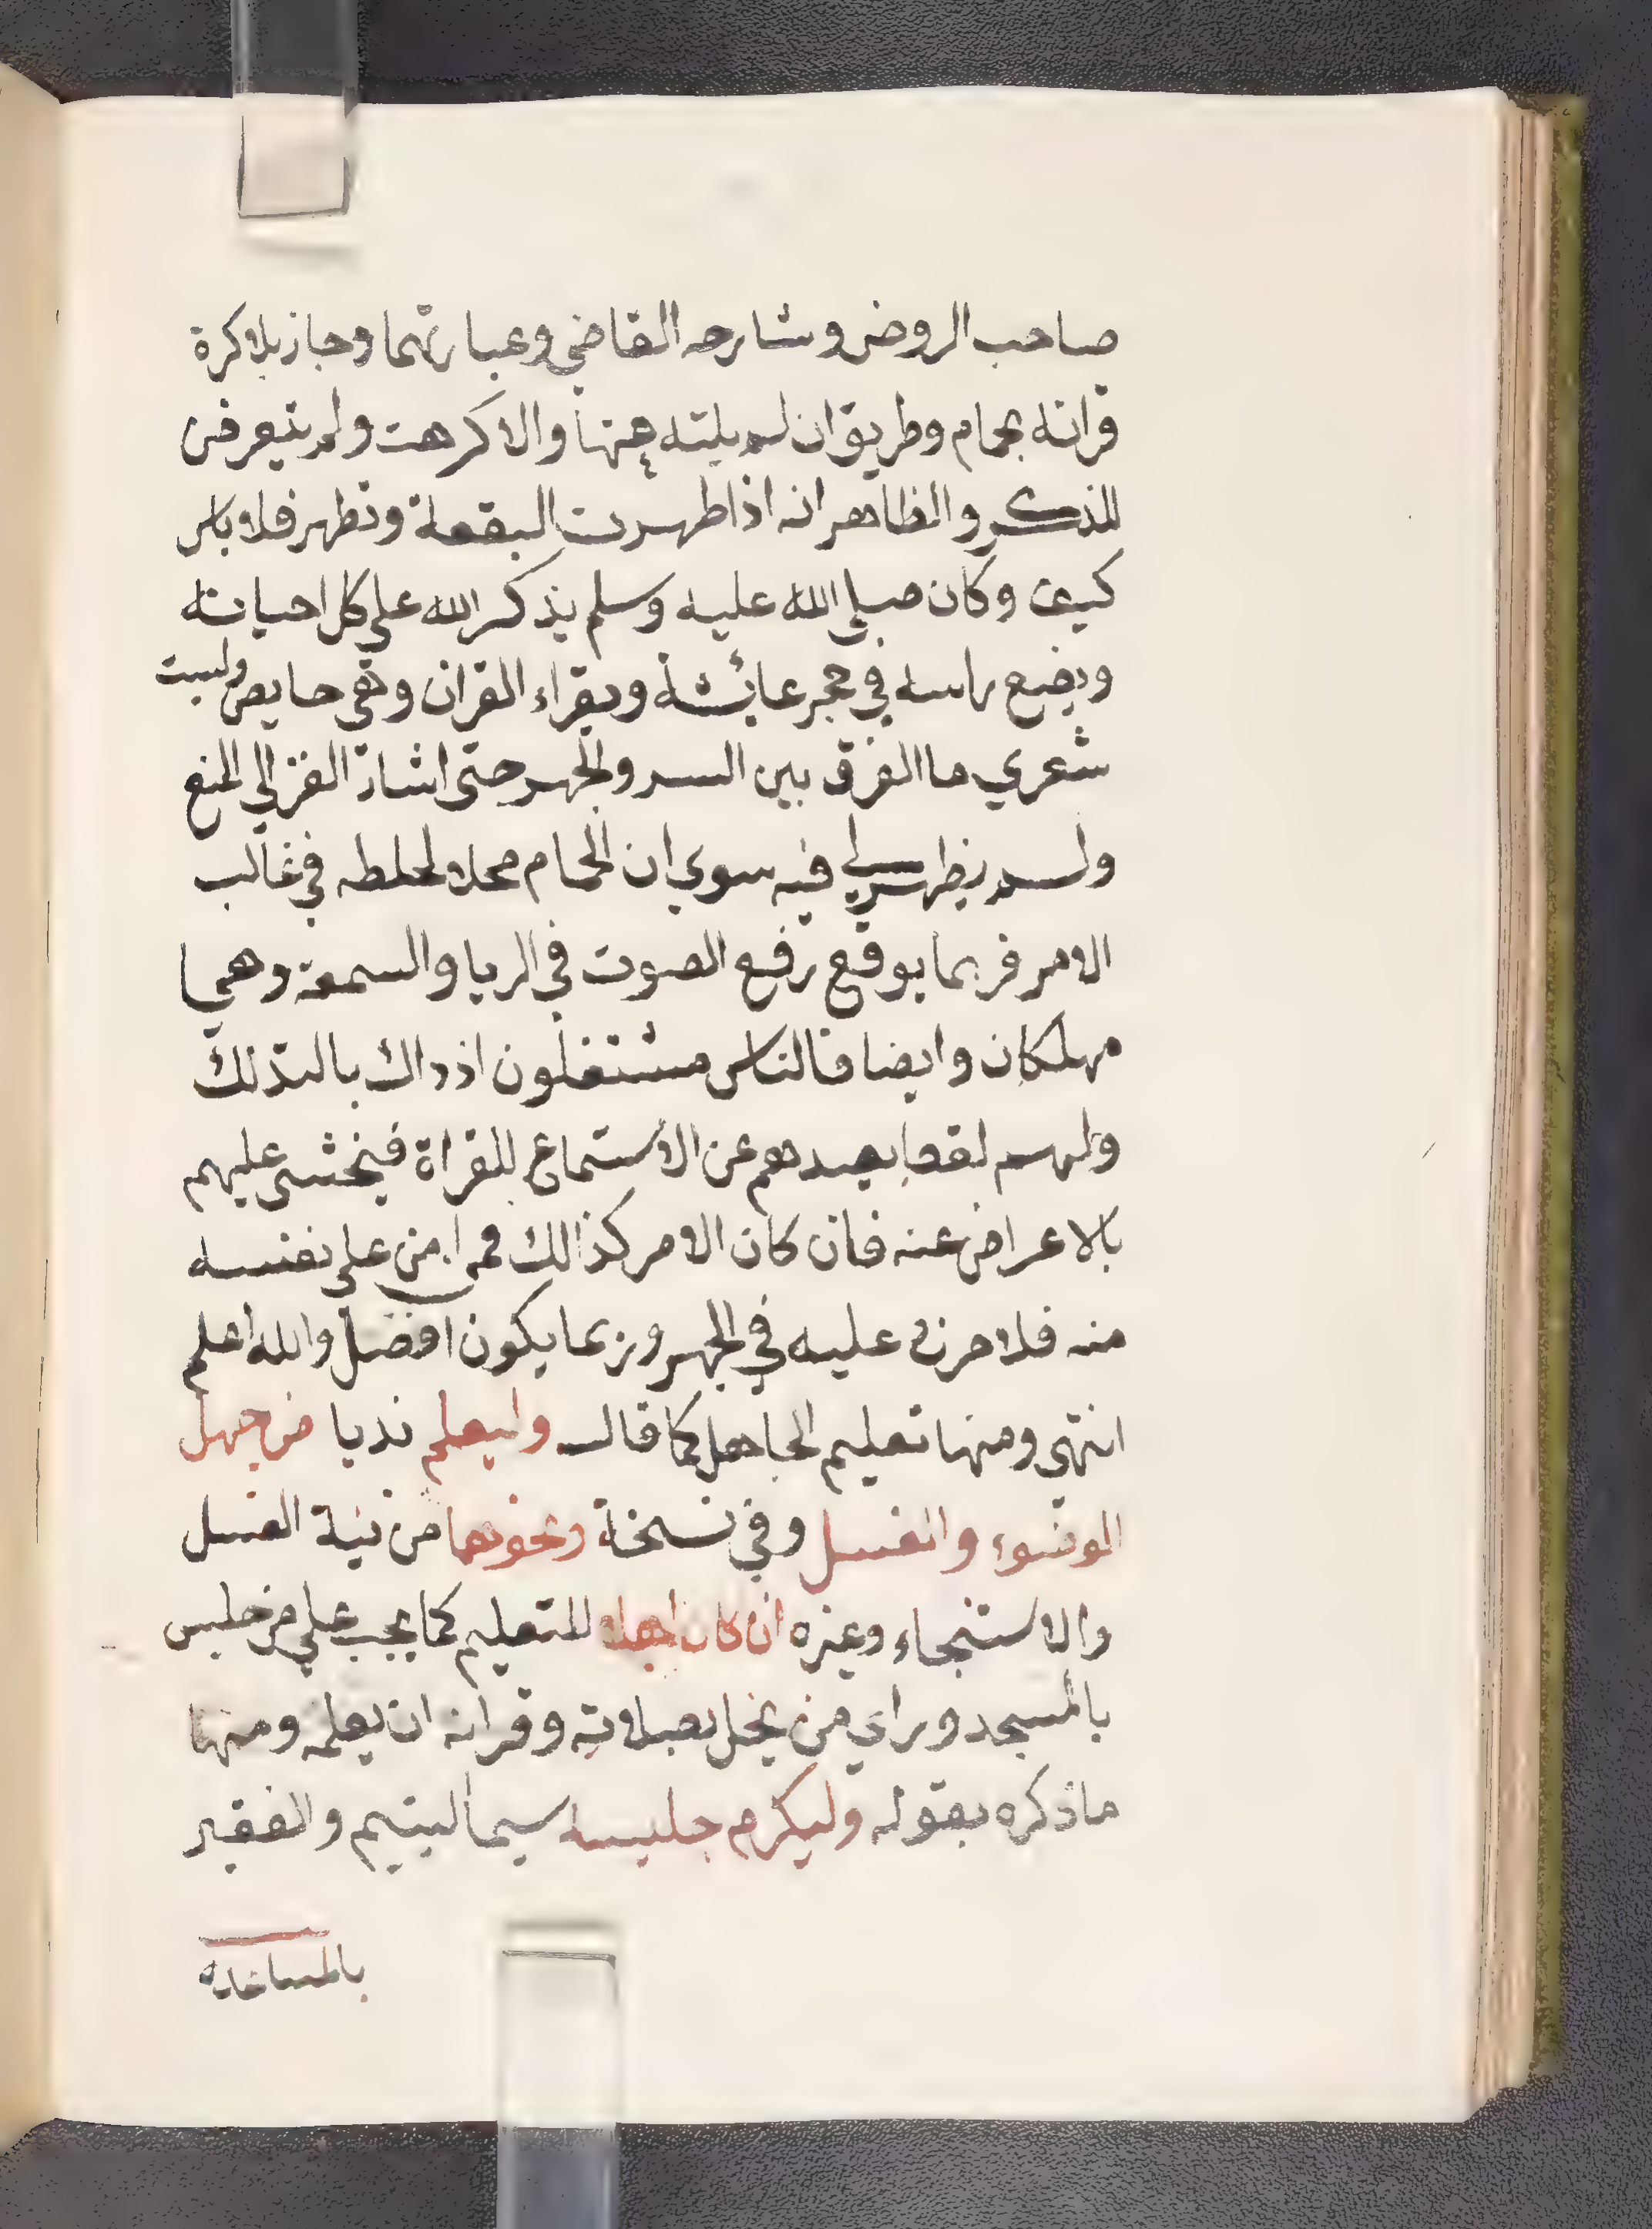 صاحب الروض وشارحه القاضي وعبارتهما وجاز بلا كرة
قرانه بحمام وطريق ان لم يلته عنها والا كرهت ولم يتعرض
للذكر والظاهر انه اذا طهرت البقعة وتطهر فلا باس
كيف وكان صلى الله عليه وسلم يذكر الله على كل احيانه
ويضع راسه في حجر عائشة ويقراء القران وهي حايض وليت
شعري ما الفرق بين السر والجهر حتى اشار الغزالي المنع
ولم يظهر لي فيه سوي ان الحمام محلا لخلطه في غالب
الامر فربما يوقع رفع الصوت في الريا والسمعة وهما
مهلكان وايضا فالناس مشتغلون اذ ذاك بالتدلك
ولهم لغط يصدهم عن الاستماع للقراة فيخشى عليهم
بالاعراض عنه فان كان الامر كذالك فمن امن على نفسه
منه فلا حرج عليه في الجهر وربما يكون افضل والله اعلم
انتهى ومنها تعليم الجاهل كما قال وليعلم ندبا من جهل
الوضوء والغسل وفي نسخة ونحوهما من نية الغسل
والاستنجاء وغيره ان كان اهلا للتعليم كما يجب على من جلس
بالمسجد وراي من يخل بصلاته وقرانه ان يعلمه ومنها
ماذكره بقوله وليكرم جليسه سيما اليتيم والفقير